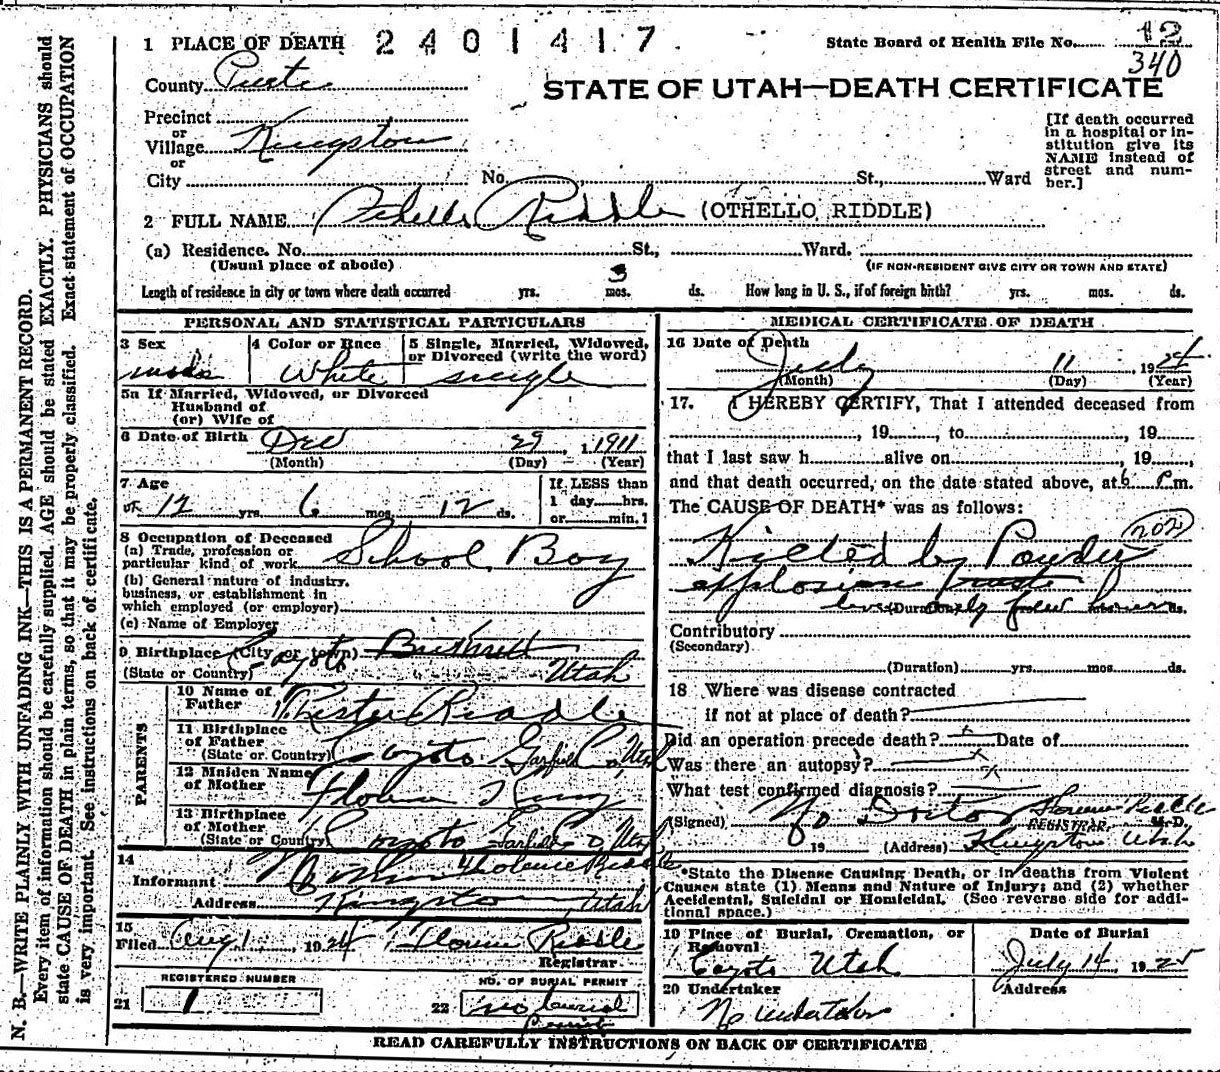 1 PLACE OF DEATH 2401417. State Board of Health File No. 12
340
County Piute
STATE OF UTAH—DEATH CERTIFICATE
Precinct
or
Village Kingston
or
City No. St., Ward
[If death occurred
in a hospital or in-
stitution give its
NAME instead of
street and num-
ber.]
2 FULL NAME Othello Riddle (OTHELLO RIDDLE)
(a) Residence. No. St., Ward.
(Usual place of abode) (IF NON-RESIDENT GIVE CITY OR TOWN AND STATE)
Length of residence in city or town where death occurred yrs. 3 mos. ds. How long in U. S., if of foreign birth? yrs. mos. ds.
PERSONAL AND STATISTICAL PARTICULARS
3 Sex 4 Color or Race 5 Single, Married, Widowed,
or Divorced (write the word)
male White single
5a If Married, Widowed, or Divorced
Husband of
(or) Wife of
6 Date of Birth Dec 29, 1911
(Month) (Day) (Year)
7 Age If LESS than
1 day hrs.
or min.
12 yrs. 6 mos. 12 ds.
8 Occupation of Deceased
(a) Trade, profession or
particular kind of work School Boy
(b) General nature of industry,
business, or establishment in
which employed (or employer)
(c) Name of Employer
9 Birthplace (City or town) Coyoto
(State or Country) Utah
PARENTS
10 Name of
Father Lester Riddle
11 Birthplace
of Father
(State or Country) Coyoto Garfield Co, Utah
12 Maiden Name
of Mother Florence King
13 Birthplace
of Mother
(State or Country) Coyoto Garfield Co Utah
14
Informant Florence Riddle
Address Kingston, Utah
15
Filed Aug 1, 1924 Florence Riddle
Registrar
REGISTERED NUMBER NO. OF BURIAL PERMIT
21 1 22 no burial
Permit
MEDICAL CERTIFICATE OF DEATH
16 Date of Death
July 11, 1924
(Month) (Day) (Year)
17. I HEREBY CERTIFY, That I attended deceased from
, 19, to, 19
that I last saw h alive on, 19,
and that death occurred, on the date stated above, at 6 P m.
The CAUSE OF DEATH* was as follows:
202
Killed by Powder
explosion
lived (Duration) only few hours ds.
Contributory
(Secondary)
(Duration) yrs. mos. ds.
18 Where was disease contracted
if not at place of death?
Did an operation precede death? x Date of
Was there an autopsy? x
What test confirmed diagnosis? x
(Signed) No Doctor Florence Riddle
REGISTRAR M. D.
19 (Address) Kingston Utah
*State the Disease Causing Death, or in deaths from Violent
Causes state (1) Means and Nature of Injury; and (2) whether
Accidental, Suicidal or Homicidal. (See reverse side for addi-
tional space.)
19 Place of Burial, Cremation, or
Removal Date of Burial
Coyoto Utah July 14, 1925
20 Undertaker Address
No Undertaker
READ CAREFULLY INSTRUCTIONS ON BACK OF CERTIFICATE
N. B.—WRITE PLAINLY WITH UNFADING INK—THIS IS A PERMANENT RECORD.
Every item of information should be carefully supplied. AGE should be stated EXACTLY. PHYSICIANS should
state CAUSE OF DEATH in plain terms, so that it may be properly classified. Exact statement of OCCUPATION
is very important. See instructions on back of certificate.